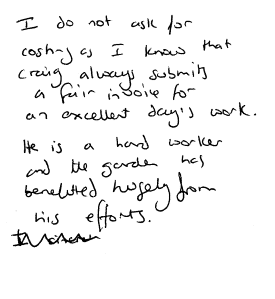 I do not ask for
costing as I know that
craig always submits
a fair invoice for
an excellent day's work.
He is a hard worker
and the garden has
benefitted hugely from
his efforts.